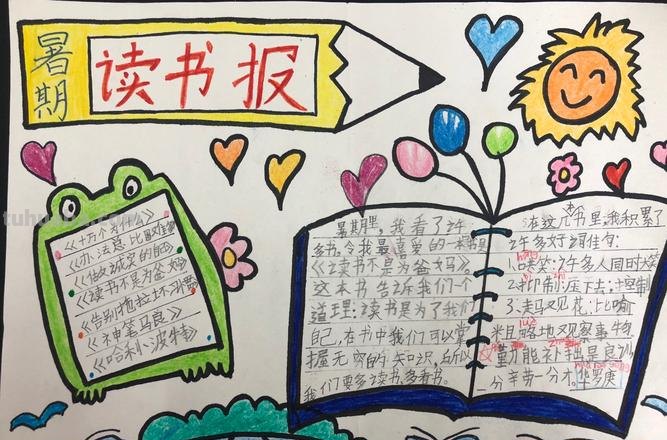 暑期
读书报
《十万个为什么》
《办法总比困难多》
《做诚实的自己》
《读书不是为爸妈》
《告别拖拉坏习惯》
《神笔马良》
《哈利·波特》
暑期里,我看了许
多书。令我最喜爱的一本书是
《读书不是为爸妈》
这本书告诉我们一个
道理:读书是为了我们
自己,在书中我们可以掌
握无穷的知识,所以
我们要多读书、多看书。
在这几本书里,我积累了
许多好词佳句:
1.哄笑:许多人同时大笑
2.抑制:压下去;控制
3.走马观花:比喻
粗略地观察事物
勤能补拙是良训
一分辛劳一分才。华罗庚